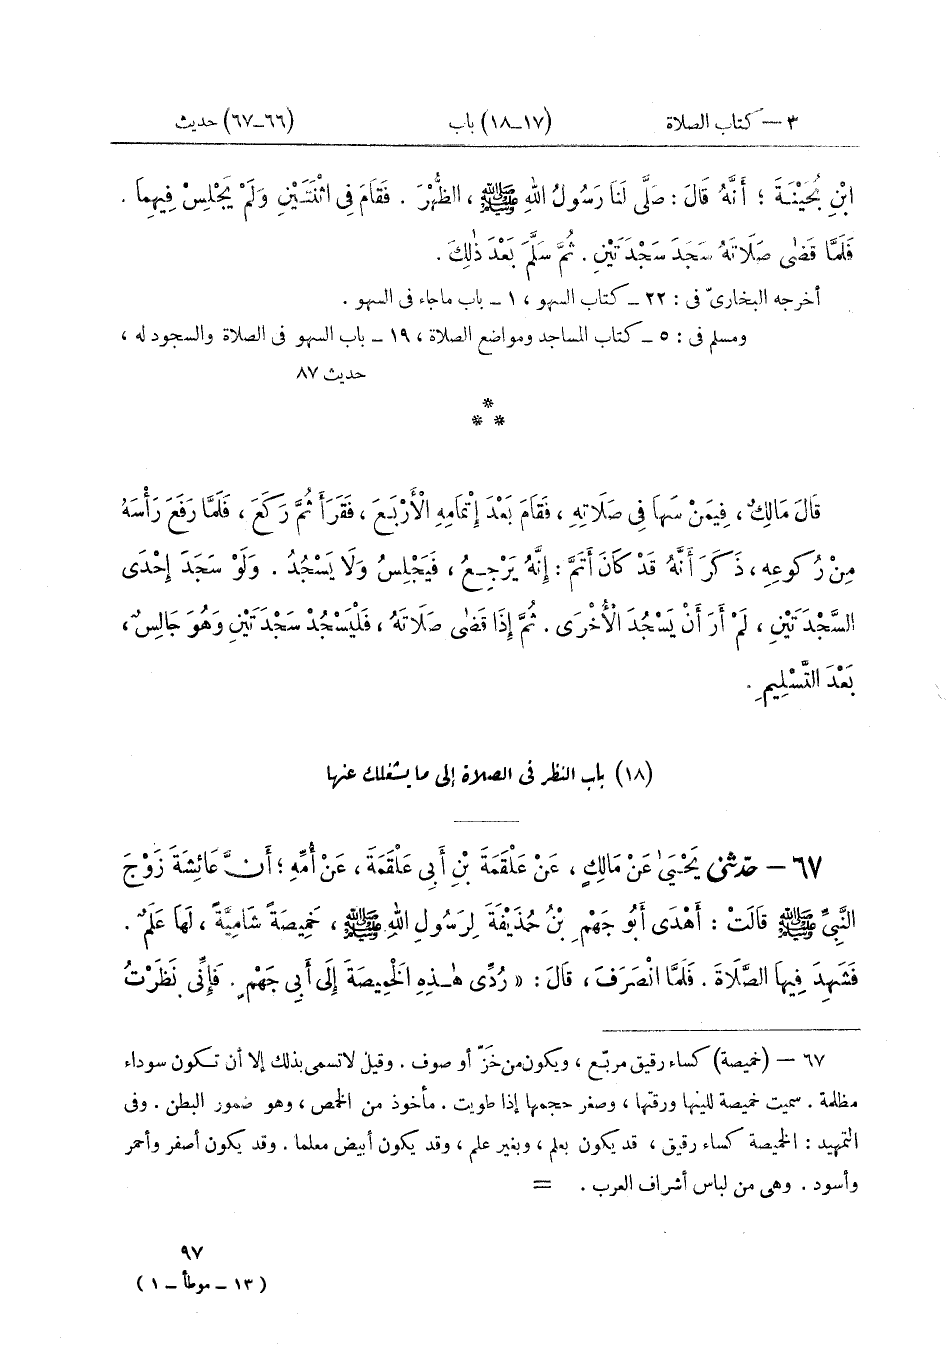 ٣ — كتاب الصلاة (١٧_١٨) باب (٦٦_٦٧) حديث
ابْنِ بُحَيْنَةَ ؛ أَنَّهُ قَالَ : صَلَّى لَنَا رَسُولُ اللهِ ﷺ ، الظُّهْرَ . فَقَامَ فِى اثْنَتَيْنِ وَلَمْ يَجْلِسْ فِيهِمَا .
فَلَمَّا قَضَى صَلَاتَهُ سَجَدَ سَجْدَتَيْنِ . ثُمَّ سَلَّمَ بَعْدَ ذٰلِكَ .
أخرجه البخارىّ فى : ٢٢ _ كتاب السهو ، ١ _ باب ماجاء فى السهو .
ومسلم فى : ٥ _ كتاب المساجد ومواضع الصلاة ، ١٩ _ باب السهو فى الصلاة والسجود له ،
حديث ٨٧
*
* *
قَالَ مَالِكٌ ، فِيمَنْ سَهَا فِى صَلَاتِهِ ، فَقَامَ بَعْدَ إِتْمَامِهِ الْأَرْبَعَ ، فَقَرَأَ ثُمَّ رَكَعَ ، فَلَمَّا رَفَعَ رَأْسَهُ
مِنْ رُكُوعِهِ ، ذَكَرَ أَنَّهُ قَدْ كَانَ أَتَمَّ : إِنَّهُ يَرْجِعُ ، فَيَجْلِسُ وَلَا يَسْجُدُ . وَلَوْ سَجَدَ إِحْدَى
السَّجْدَتَيْنِ ، لَمْ أَرَ أَنْ يَسْجُدَ الْأُخْرَى . ثُمَّ إِذَا قَضَى صَلَاتَهُ ، فَلْيَسْجُدْ سَجْدَتَيْنِ وَهُوَ جَالِسٌ ،
بَعْدَ التَّسْلِيمِ .
(١٨) باب النظر فى الصلاة إلى ما يشغلك عنها
٦٧ — حدّثنى يَحْيَىٰ عَنْ مَالِكٍ ، عَنْ عَلْقَمَةَ بْنِ أَبِى عَلْقَمَةَ ، عَنْ أُمِّهِ ؛ أَنَّ عَائِشَةَ زَوْجَ
النَّبِىِّ ﷺ قَالَتْ : أَهْدَى أَبُو جَهْمِ بْنُ حُذَيْفَةَ لِرَسُولِ اللهِ ﷺ ، خَمِيصَةً شَامِيَّةً ، لَهَا عَلَمٌ .
فَشَهِدَ فِيهَا الصَّلَاةَ . فَلَمَّا انْصَرَفَ ، قَالَ : « رُدِّى هٰذِهِ الْخَمِيصَةَ إِلَى أَبِى جَهْمٍ . فَإِنِّى نَظَرْتُ
٦٧ — (خميصة) كساء رقيق مربّع ، ويكون من خَزّ أو صوف . وقيل لاتسمى بذلك إلا أن تكون سوداء
مظلمة . سميت خميصة للينها ورقتها ، وصغر حجمها إذا طويت . مأخوذ من الخمص ، وهو ضمور البطن . وفى
التمهيد : الخميصة كساء رقيق ، قد يكون بعلم ، وبغير علم ، وقد يكون أبيض معلما . وقد يكون أصفر وأحمر
وأسود . وهى من لباس أشراف العرب . =
٩٧
( ١٣ _ موطأ _ ١ )